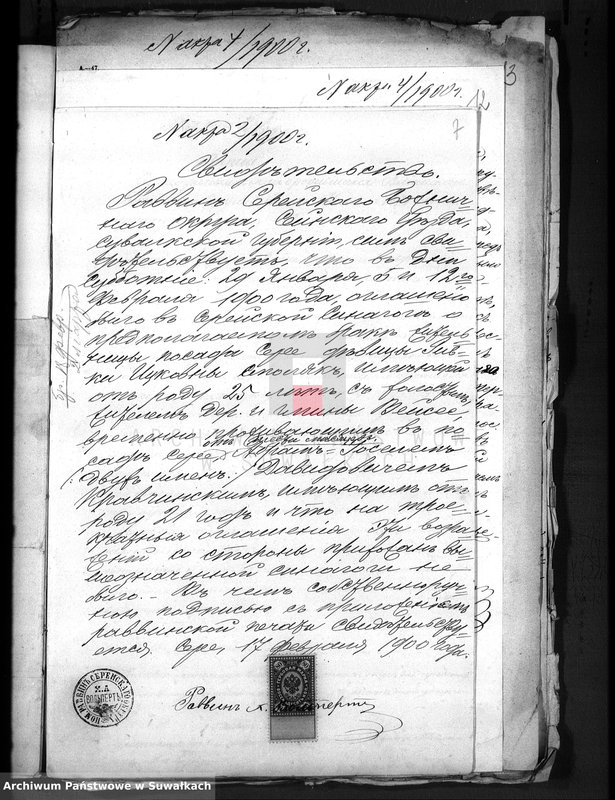 N акта 4/1900 г.
3
N акта 4/1900 г.
12
N акта 2/1900 г.
7
Свидѣтельство.
Раввинъ Серейскаго Божнич-
наго округа, Сейнскаго Уѣзда,
Сувалкской Губерніи, симъ сви-
дѣтельствуетъ, что въ дни
Субботніе: 29 Января, 5 и 12го
Февраля 1900 года, оглашено
было въ Серейской Синагогѣ о
предполагаемомъ бракѣ житель-
ницы посада Серее дѣвицы
Ицковны Столякъ, имѣющей
отъ роду 25 лѣтъ, съ
жителемъ дер. и гмины Вейсее,
временно проживающимъ въ по-
садѣ Серее Абрамъ-Іоселемъ
/двухъ именъ/ Давидовичемъ
Кравчинскимъ, имѣющимъ отъ
роду 21 годъ и что на трое-
кратныя оглашенія ни возра-
женій со стороны прихожанъ вы-
шеозначенной синагоги не
было. - Въ чемъ собственноруч-
ною подписью съ приложеніемъ
раввинской печати свидѣтельству-
ется. Серее, 17 Февраля 1900 года.
Раввинъ Х. Вольпертъ
Х.Л. ВОЛЬПЕРТЪ
Archiwum Państwowe w Suwałkach